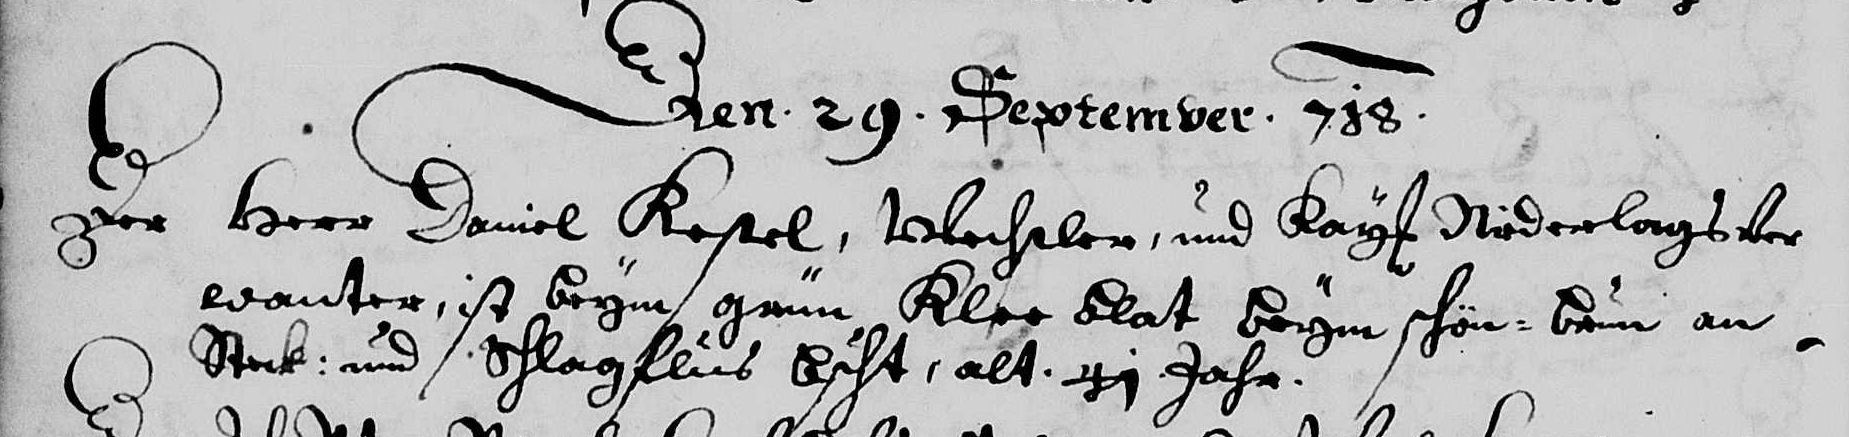 Den. 29. September. 718.
Der Herr Daniel Kestel, Wechsler, und Kayß Niderlagsver
wanter, ist beÿm grün Klee blat beÿm schön=brün an
Steck: und Schlagflus bscht, alt. 41 Jahr.